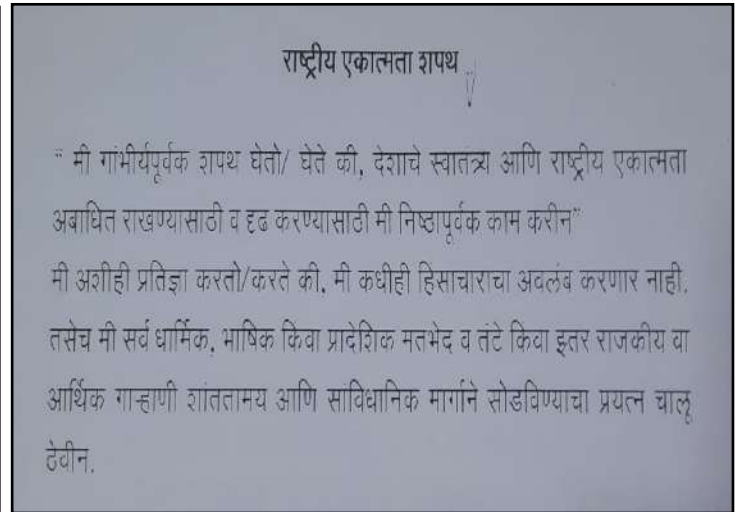 राष्ट्रीय एकात्मता शपथ
" मी गांभीर्यपूर्वक शपथ घेतो/ घेते की, देशाचे स्वातंत्र्य आणि राष्ट्रीय एकात्मता
अबाधित राखण्यासाठी व दृढ करण्यासाठी मी निष्ठापूर्वक काम करीन"
मी अशीही प्रतिज्ञा करतो/करते की, मी कधीही हिंसाचाराचा अवलंब करणार नाही.
तसेच मी सर्व धार्मिक, भाषिक किंवा प्रादेशिक मतभेद व तंटे किंवा इतर राजकीय वा
आर्थिक गाऱ्हाणी शांततामय आणि सांविधानिक मार्गाने सोडविण्याचा प्रयत्न चालू
ठेवीन.